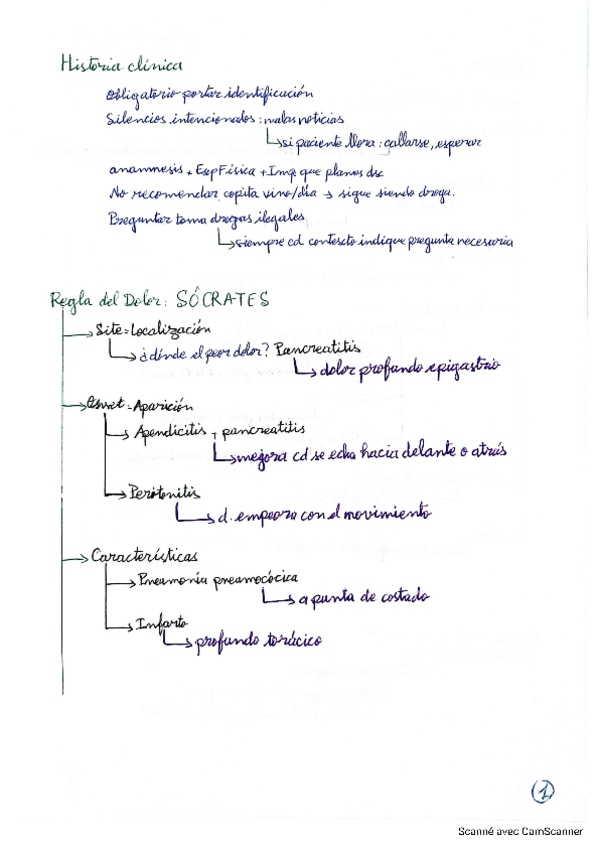 Historia clínica
Obligatorio portar identificación
Silencios intencionados: malas noticias
si paciente llora: callarse, esperar
anamnesis + Exp Física + Imp que planos dx
No recomendar copita vino/día → sigue siendo droga.
Preguntar toma drogas ilegales
siempre cd contexto indique pregunta necesaria
Regla del Dolor: SÓCRATES
Site = Localización
¿dónde el peor dolor? Pancreatitis
dolor profundo epigastrio
Onset = Aparición
Apendicitis, pancreatitis
mejora cd se echa hacia delante o atrás
Peritonitis
d. empeora con el movimiento
Características
Pneumonía pneumocócica
a punta de costado
Infarto
profundo torácico
1
Scanné avec CamScanner